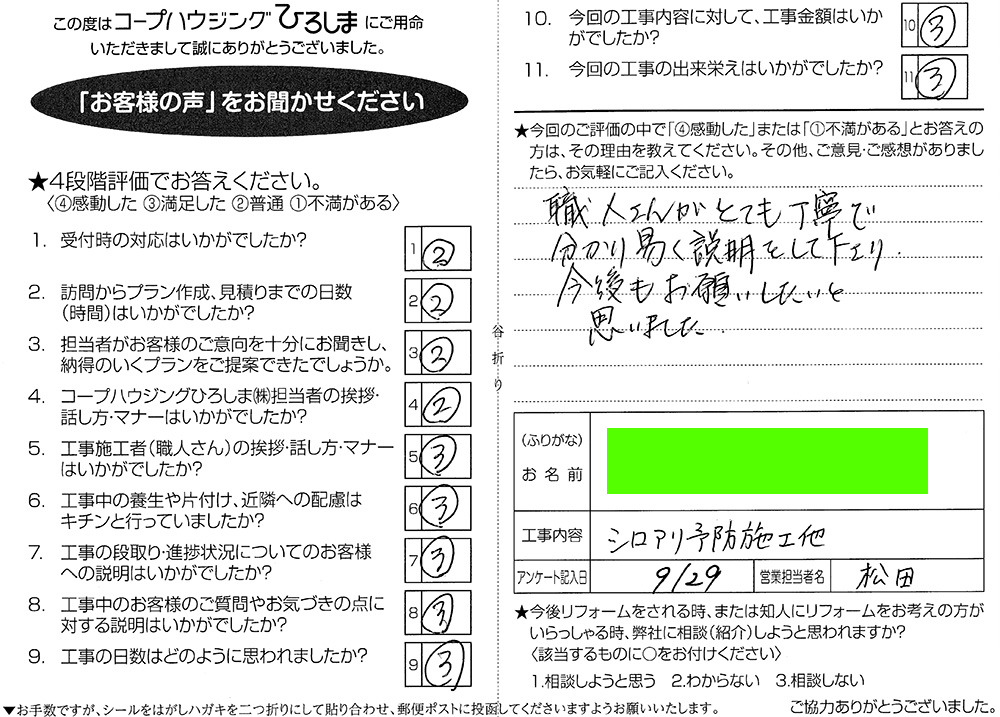 この度はコープハウジングひろしまにご用命
いただきまして誠にありがとうございました。
「お客様の声」をお聞かせください
★4段階評価でお答えください。
〈④感動した ③満足した ②普通 ①不満がある〉
1. 受付時の対応はいかがでしたか?
1 ②
2. 訪問からプラン作成、見積りまでの日数
(時間)はいかがでしたか?
2 ②
3. 担当者がお客様のご意向を十分にお聞きし、
納得のいくプランをご提案できたでしょうか。
3 ②
4. コープハウジングひろしま㈱担当者の挨拶・
話し方・マナーはいかがでしたか?
4 ②
5. 工事施工者(職人さん)の挨拶・話し方・マナー
はいかがでしたか?
5 ③
6. 工事中の養生や片付け、近隣への配慮は
キチンと行っていましたか?
6 ③
7. 工事の段取り・進捗状況についてのお客様
への説明はいかがでしたか?
7 ③
8. 工事中のお客様のご質問やお気づきの点に
対する説明はいかがでしたか?
8 ③
9. 工事の日数はどのように思われましたか?
9 ③
▼お手数ですが、シールをはがしハガキを二つ折りにして貼り合わせ、郵便ポストに投函してくださいますようお願いいたします。
谷折り
10. 今回の工事内容に対して、工事金額はいか
がでしたか?
10 ③
11. 今回の工事の出来栄えはいかがでしたか?
11 ③
★今回のご評価の中で「④感動した」または「①不満がある」とお答えの
方は、その理由を教えてください。その他、ご意見・ご感想がありまし
たら、お気軽にご記入ください。
職人さんがとても丁寧で
分かり易く説明をして下さり.
今後もお願いしたいと
思いました.
(ふりがな)
お名前
工事内容 シロアリ予防施工他
アンケート記入日 9/29 営業担当者名 松田
★今後リフォームをされる時、または知人にリフォームをお考えの方が
いらっしゃる時、弊社に相談(紹介)しようと思われますか?
〈該当するものに○をお付けください〉
1.相談しようと思う 2.わからない 3.相談しない
ご協力ありがとうございました。